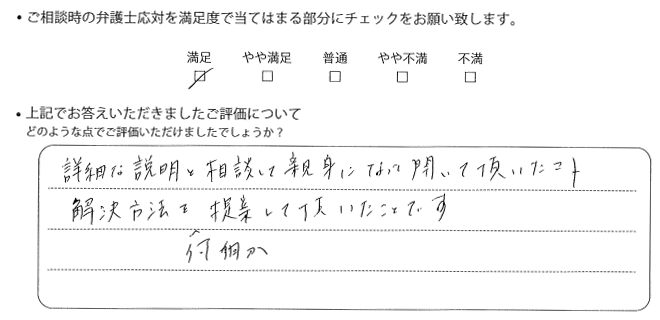 ・ご相談時の弁護士応対を満足度で当てはまる部分にチェックをお願い致します。
満足 やや満足 普通 やや不満 不満
・上記でお答えいただきましたご評価について
どのような点でご評価いただけましたでしょうか？
詳細な説明と相談して親身になって聞いて頂いたこと
解決方法を提案して頂いたことです
何個か